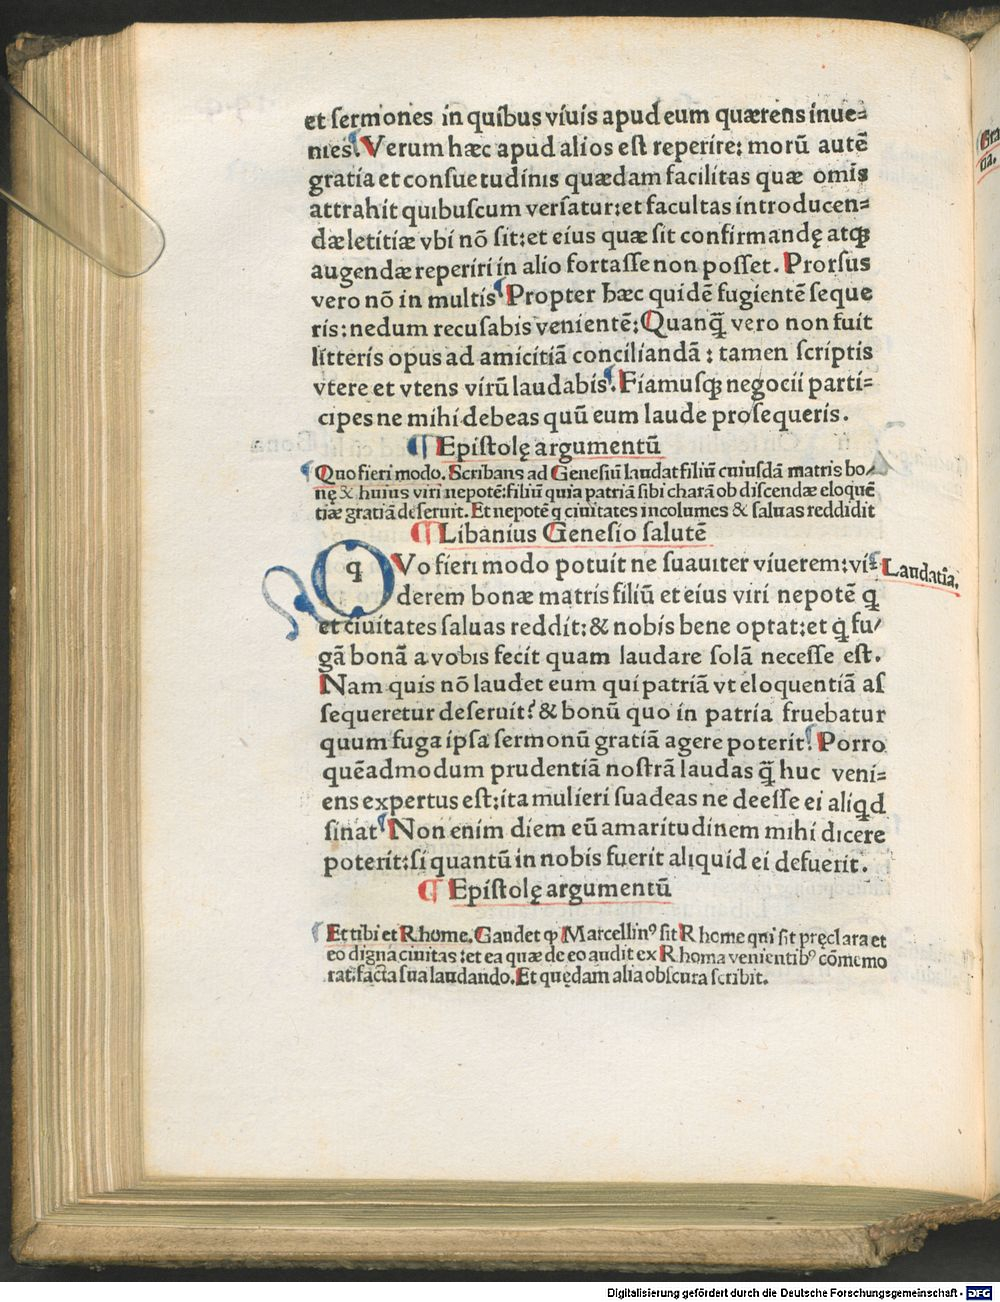 et ſermones in quibus viuis apud eum quærens inue⸗
nies. Verum hæc apud alios eſt reperire: morū autē
gratia et conſuetudinis quædam facilitas quæ omīs
attrahit quibuſcum verſatur: et facultas introducen⸗
dæ letitiæ vbi nō ſit: et eius quæ ſit confirmandę atqꝫ
augendæ reperiri in alio fortaſſe non poſſet. Prorſus
vero nō in multis Propter hæc quidē fugientē ſeque
ris: nedum recuſabis venientē: Quanq̄ vero non fuit
litteris opus ad amicitiā conciliandā: tamen ſcriptis
vtere et vtens virū laudabis. Fiamuſqꝫ negocii parti⸗
cipes ne mihi debeas quū eum laude proſequeris.
¶ Epiſtolę argumentū
Quo fieri modo. Scribans ad Geneſiū laudat filiū cuiuſdā matris bo⸗
nę & huius viri nepotē: filiū quia patriā ſibi charā ob diſcendæ eloquē
tiæ gratiā deſeruit. Et nepotē q ciuitates incolumes & ſaluas reddidit
¶ Libanius Geneſio ſalutē
q Vo fieri modo potuit ne ſuauiter viuerem: vi⸗
Laudatīa.
derem bonæ matris filiū et eius viri nepotē q̄
et ciuitates ſaluas reddit: & nobis bene optat: et q̄ fu/
gā bonā a vobis fecit quam laudare ſolā neceſſe eſt.
Nam quis nō laudet eum qui patriā vt eloquentiā aſ
ſequeretur deſeruit? & bonū quo in patria fruebatur
quum fuga ipſa ſermonū gratiā agere poterit? Porro
quēadmodum prudentiā noſtrā laudas q̄ huc veni⸗
ens expertus eſt: ita mulieri ſuadeas ne deeſſe ei aliqd
ſinat Non enim diem eū amaritudinem mihi dicere
poterit: ſi quantū in nobis fuerit aliquid ei defuerit.
¶ Epiſtolę argumentū
Et tibi et Rhome. Gaudet ꝙ Marcellinꝰ ſit Rhome qui ſit pręclara et
eo digna ciuitas: et ea quæ de eo audit ex Rhoma venientibꝰ cōmemo
rat. facta ſua laudando. Et quędam alia obſcura ſcribit.
Gra
tīa.
Digitalisierung gefördert durch die Deutsche Forschungsgemeinschaft - DFG